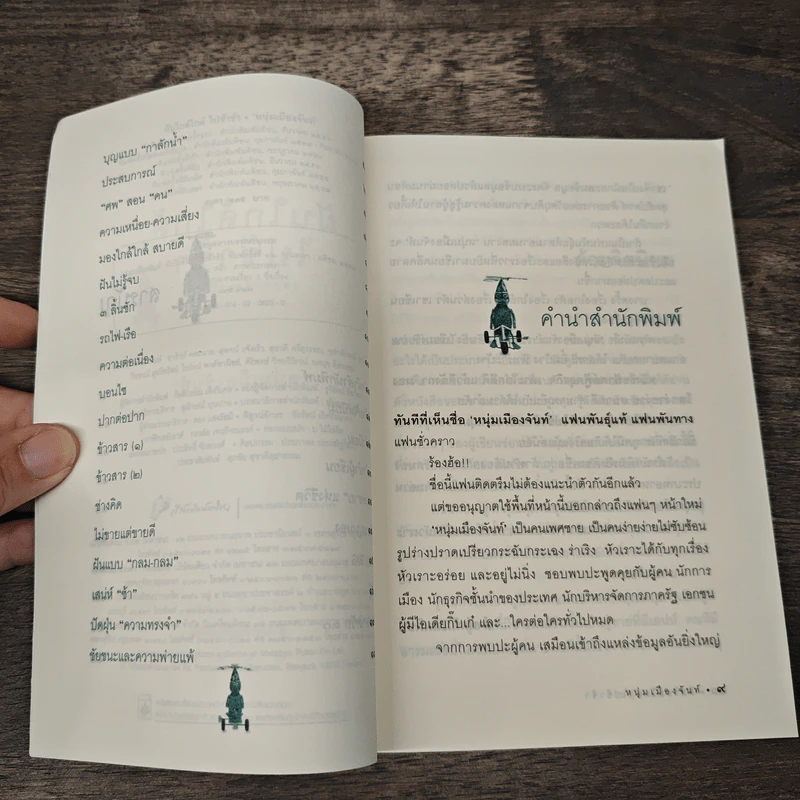 บุญแบบ “กาลักน้ำ”
ประสบการณ์
“ศพ” สอน “คน”
ความเหนื่อย-ความเสี่ยง
มองใกล้ใกล้ สบายดี
ฝันไม่รู้จบ
๓ ลิ้นชัก
รถไฟ-เรือ
ความต่อเนื่อง
บอนไซ
ปากต่อปาก
ข้าวสาร (๑)
ข้าวสาร (๒)
ช่างคิด
ไม่ขายแต่ขายดี
ฝันแบบ “กลม-กลม”
เสน่ห์ “ช้า”
ปัดฝุ่น “ความทรงจำ”
ชัยชนะและความพ่ายแพ้
คำนำสำนักพิมพ์
ทันทีที่เห็นชื่อ ‘หนุ่มเมืองจันท์’ แฟนพันธุ์แท้ แฟนพันทาง
แฟนชั่วคราว
ร้องอ้อ!!
ชื่อนี้แฟนติดตรึมไม่ต้องแนะนำตัวกันอีกแล้ว
แต่ขออนุญาตใช้พื้นที่หน้านี้บอกกล่าวถึงแฟนๆ หน้าใหม่
‘หนุ่มเมืองจันท์’ เป็นคนเพศชาย เป็นคนง่ายง่ายไม่ซับซ้อน
รูปร่างปราดเปรียวกระฉับกระเฉง ร่าเริง หัวเราะได้กับทุกเรื่อง
หัวเราะอร่อย และอยู่ไม่นิ่ง ชอบพบปะพูดคุยกับผู้คน นักการ
เมือง นักธุรกิจชั้นนำของประเทศ นักบริหารจัดการภาครัฐ เอกชน
ผู้มีไอเดียกิ๊บเก๋ และ...ใครต่อใครทั่วไปหมด
จากการพบปะผู้คน เสมือนเข้าถึงแหล่งข้อมูลอันยิ่งใหญ่
หนุ่มเมืองจันท์ • ๙